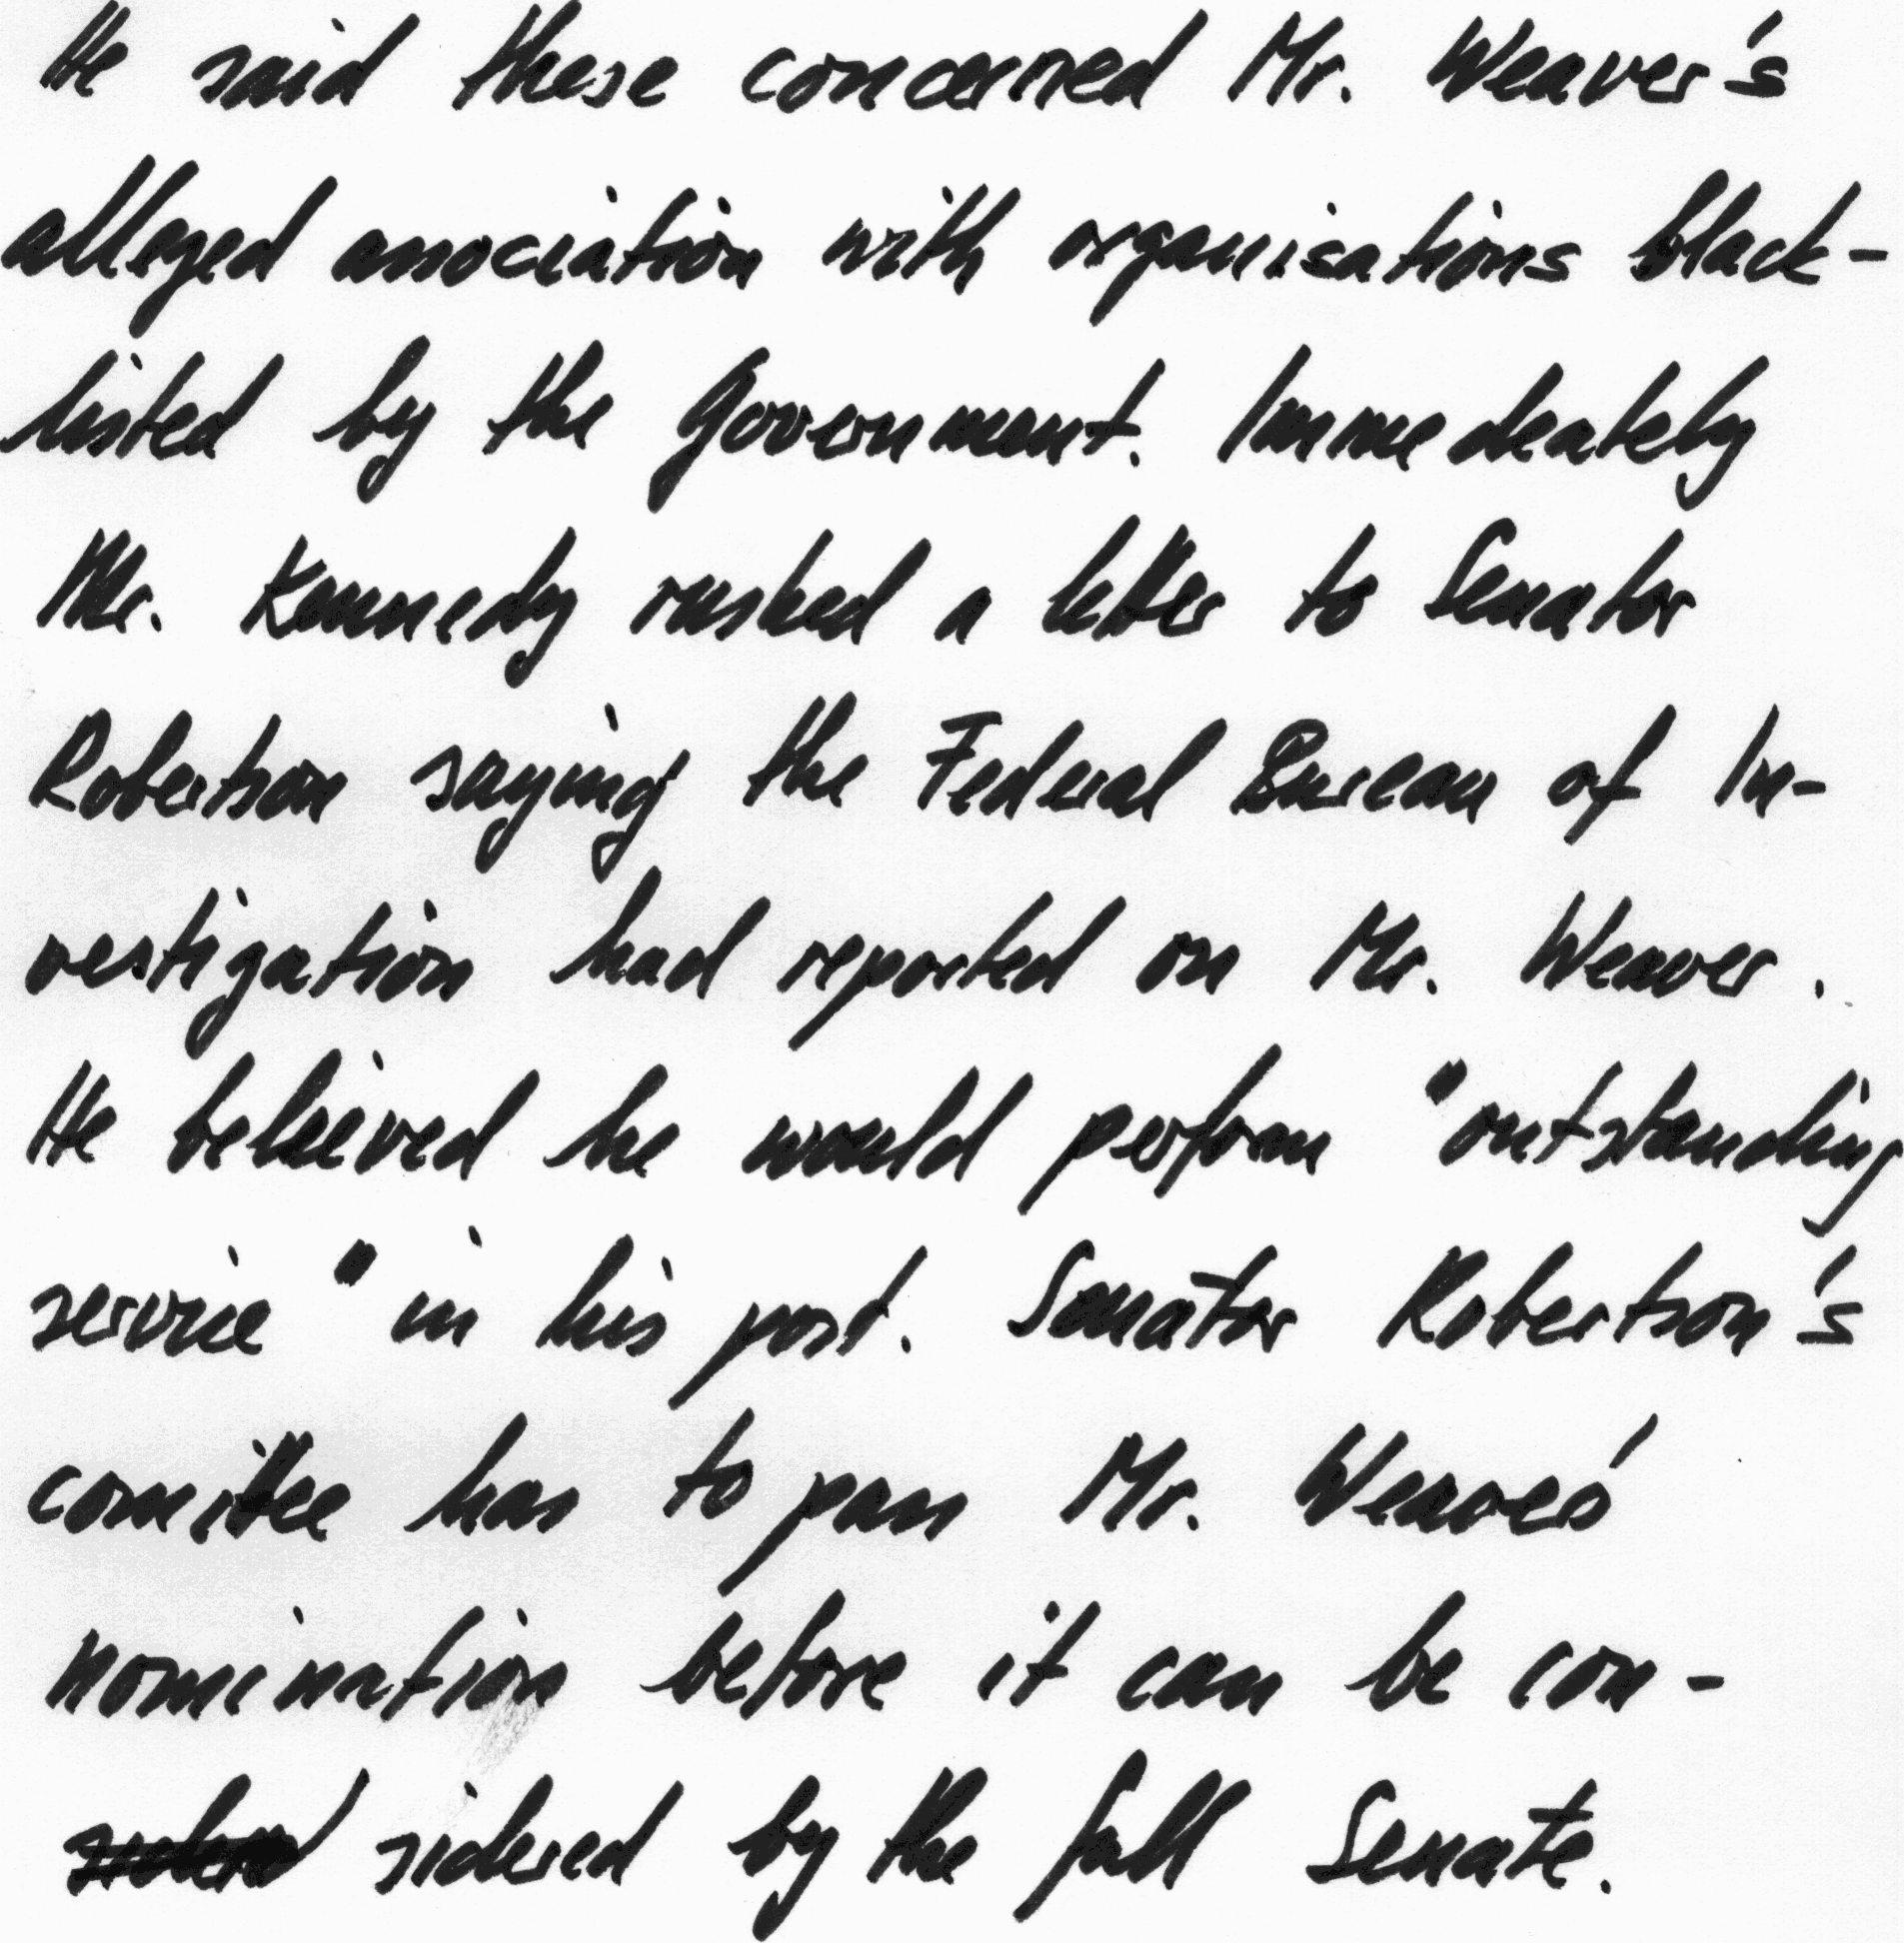 He said these concerned Mr. Weaver's
alleged association with organisations black-
listed by the Government. Immediately
Mr. Kennedy rushed a letter to Senator
Robertson saying the Federal Bureau of In-
vestigation had reported on Mr. Weaver.
He believed he would perform "outstanding
service" in his post. Senator Robertson's
comittee has to pass Mr. Weavers'
nomination before it can be con-
sidered by the full Senate.